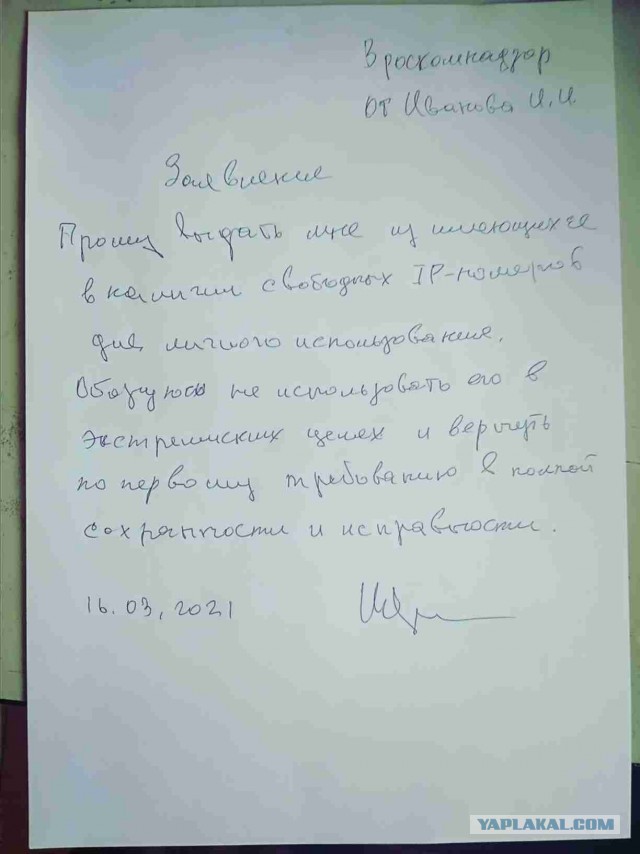 В роскомнадзор
от Иванова И.И.
Заявление
Прошу выдать мне из имеющихся
в наличии свободных IP-номеров
для личного использования.
Обязуюсь не использовать его в
экстремиских целях и вернуть
по первому требованию в полной
сохранности и исправности.
16.03.2021
YAPLAKAL.COM